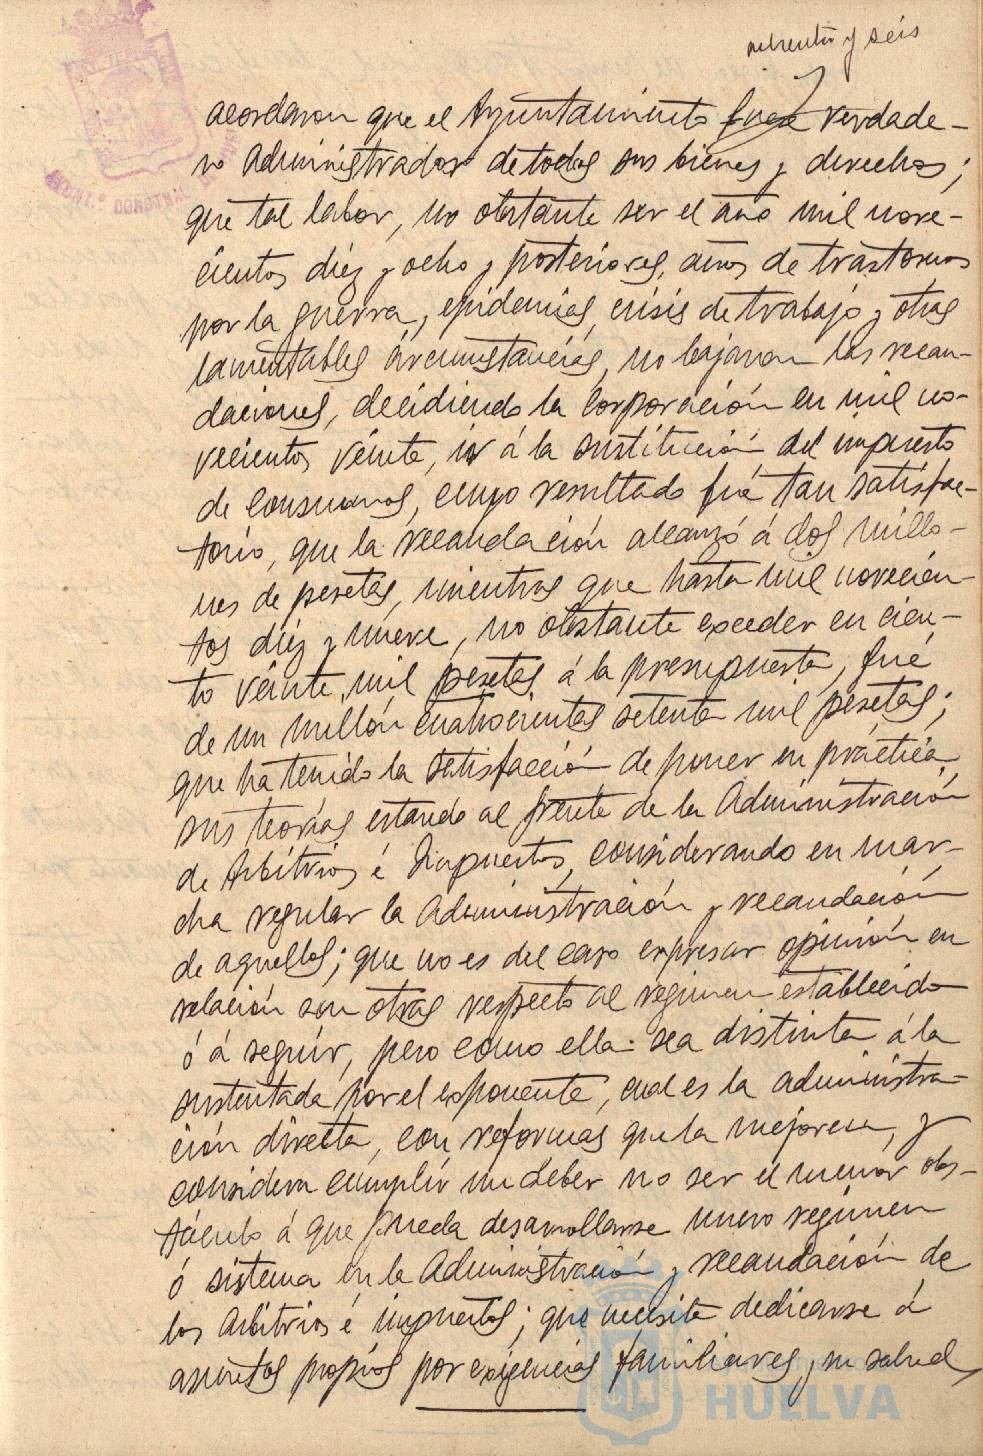 y seis
acordaron que el Ayuntamiento fuese verdade-
ro administrador de todos sus bienes y derechos;
que tal labor, no obstante ser el año mil nove-
cientos diez y ocho y posteriores, años de trastornos
por la guerra, epidemias, crisis de trabajo y otras
lamentables circunstancias, no bajaron las recau-
daciones, decidiendo la Corporación en mil no-
vecientos veinte, ir á la sustitución del impuesto
de consumos, cuyo resultado fué tan satisfac-
torio, que la recaudación alcanzó á dos millo-
nes de pesetas, mientras que hasta mil novecien-
tos diez y nueve, no obstante exceder en cien-
to veinte mil pesetas á la presupuesta, fué
de un millón cuatrocientas setenta mil pesetas;
que ha tenido la satisfacción de poner en práctica
sus teorías estando al frente de la Administración
de Arbitrios é Impuestos, considerando en mar-
cha regular la administración y recaudación
de aquellos; que no es del caso expresar opinión en
relación con otras respecto al regimen establecido
ó á seguir, pero como ella sea distinta á la
sustentada por el exponente, cual es la administra-
ción directa, con reformas que la mejoren, y
considera cumplir un deber no ser el menor obs-
táculo á que pueda desarrollarse nuevo regimen
ó sistema en la Administración y recaudación de
los Arbitrios é impuestos; que necesita dedicarse á
asuntos propios por exigencias familiares y su salud,
HUELVA